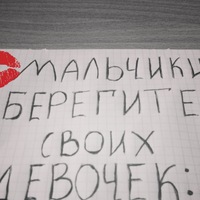 МАЛЬЧИКИ
БЕРЕГИТЕ
СВОИХ
ДЕВОЧЕК: